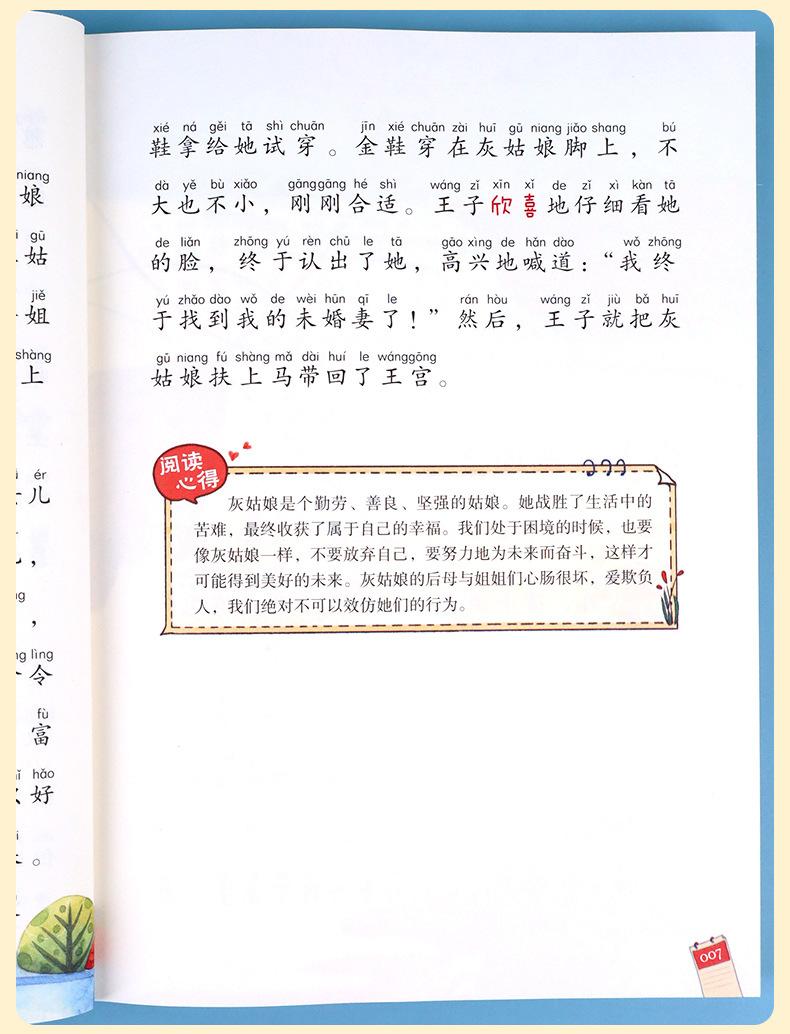 niang
娘
gū
姑
jiě
姐
shàng
上
ér
儿
，
，
lìng
令
fù
富
hǎo
好
。
xié ná gěi tā shì chuān jīn xié chuān zài huī gū niang jiǎo shang bú
鞋拿给她试穿。金鞋穿在灰姑娘脚上，不
dà yě bù xiǎo gānggāng hé shì wáng zǐ xīn xǐ de zǐ xì kàn tā
大也不小，刚刚合适。王子欣喜地仔细看她
de liǎn zhōng yú rèn chū le tā gāo xìng de hǎn dào wǒ zhōng
的脸，终于认出了她，高兴地喊道：“我终
yú zhǎo dào wǒ de wèi hūn qī le rán hòu wáng zǐ jiù bǎ huī
于找到我的未婚妻了！”然后，王子就把灰
gū niang fú shàng mǎ dài huí le wánggōng
姑娘扶上马带回了王宫。
阅读
心得
灰姑娘是个勤劳、善良、坚强的姑娘。她战胜了生活中的
苦难，最终收获了属于自己的幸福。我们处于困境的时候，也要
像灰姑娘一样，不要放弃自己，要努力地为未来而奋斗，这样才
可能得到美好的未来。灰姑娘的后母与姐姐们心肠很坏，爱欺负
人，我们绝对不可以效仿她们的行为。
007